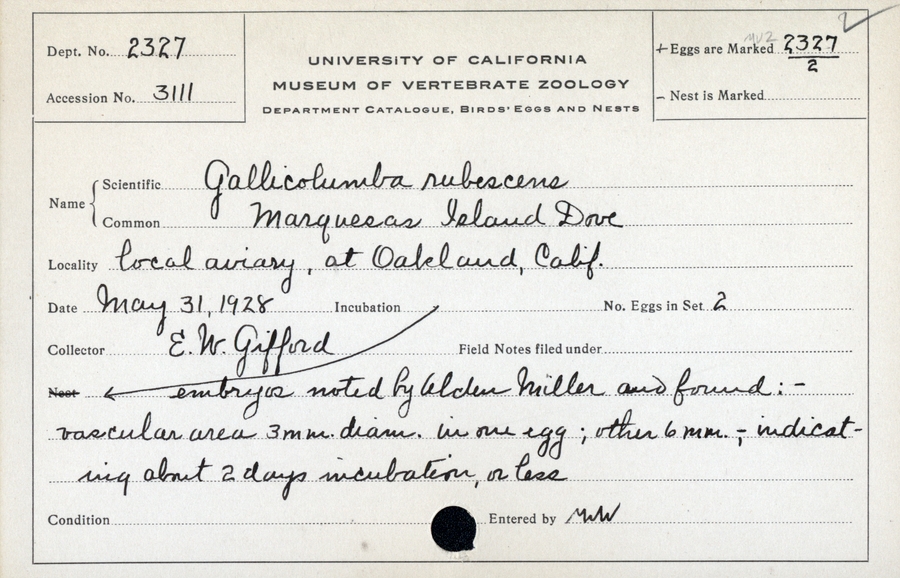 Dept. No. 2327
Accession No. 3111
UNIVERSITY OF CALIFORNIA
MUSEUM OF VERTEBRATE ZOOLOGY
DEPARTMENT CATALOGUE, BIRDS' EGGS AND NESTS
MVZ
+ Eggs are Marked 2327/2
– Nest is Marked
Name
Scientific Gallicolumba rubescens
Common Marquesas Island Dove
Locality local aviary, at Oakland, Calif.
Date May 31, 1928 Incubation No. Eggs in Set 2
Collector E. W. Gifford Field Notes filed under
Nest embryos noted by Alden Miller and found:-
vascular area 3mm. diam. in one egg; other 6 mm.-; indicat-
ing about 2 days incubation, or less
Condition Entered by